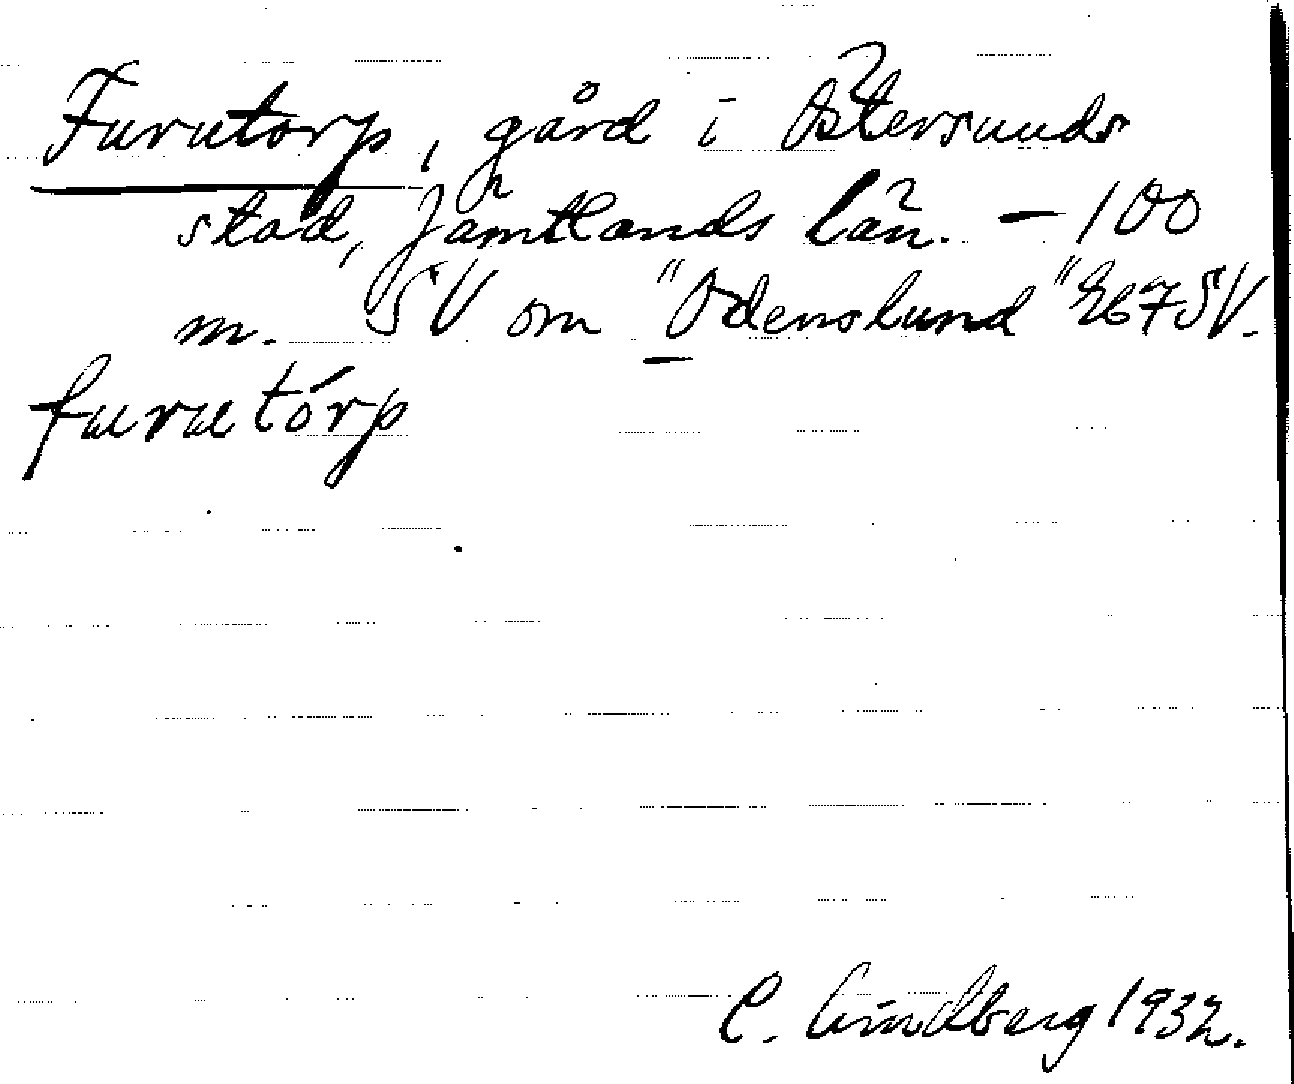 Furutorp, gård i Östersunds
stad, Jämtlands län. – 100
m. SV om "Odenslund" Eb7SV.
furutórp
C. Lindberg 1932.